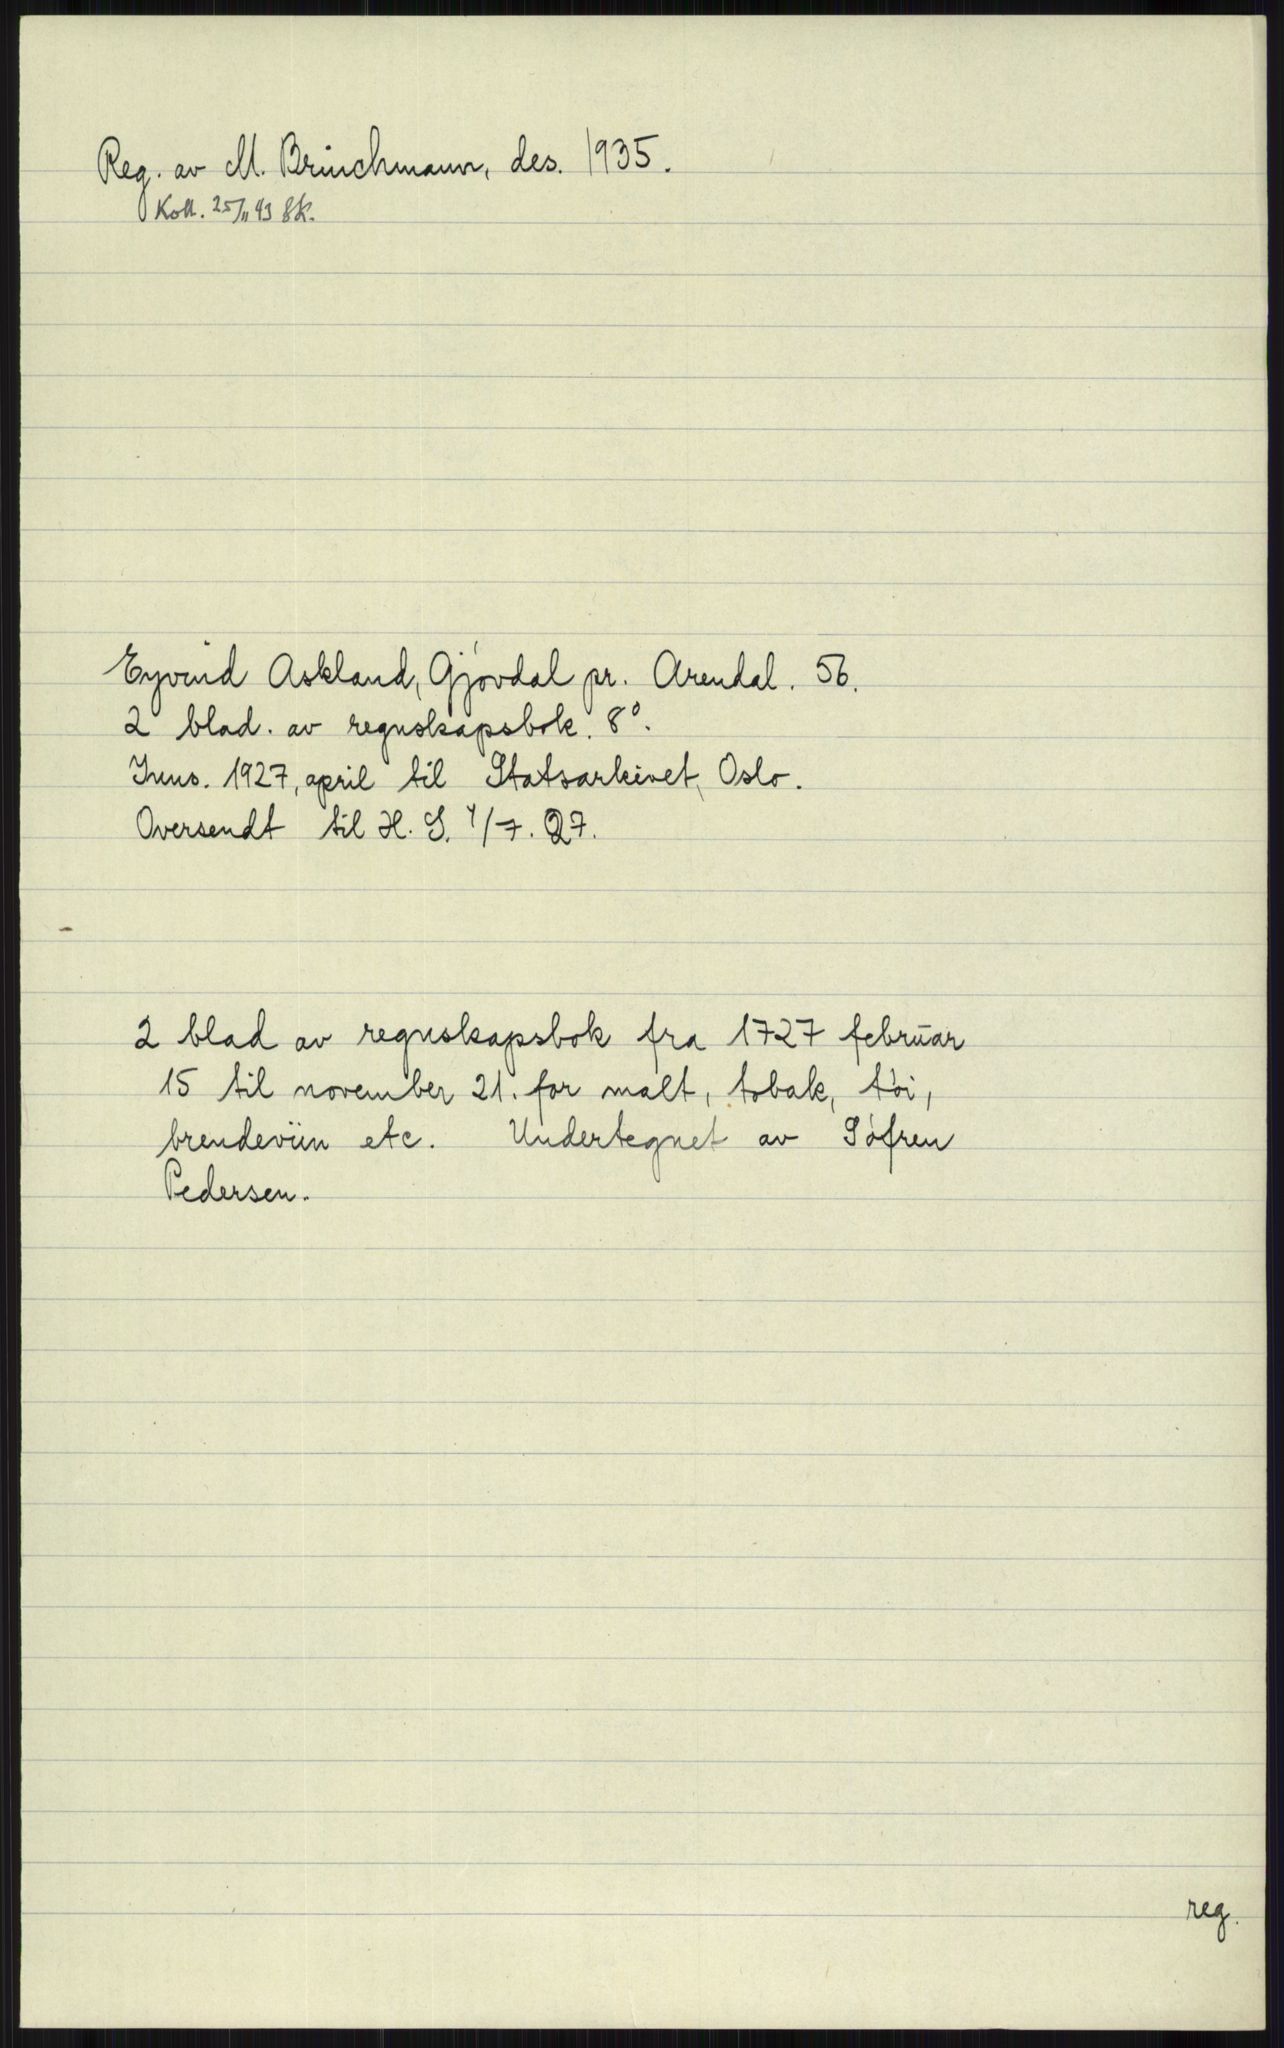 Reg. av M. Brinchmann, des. 1935.
Koll. 25/11 43 SK.
Eyvind Askland, Gjøvdal pr. Arendal. 56.
2 blad. av regnskapsbok. 8°.
Inns. 1927, april til Statsarkivet, Oslo.
Oversendt til H. S. 4/7. 27.
2 blad av regnskapsbok fra 1727 februar
15 til november 21. for malt, tobak, tøi,
brendeviin etc. Undertegnet av Søfren
Pedersen.
reg.